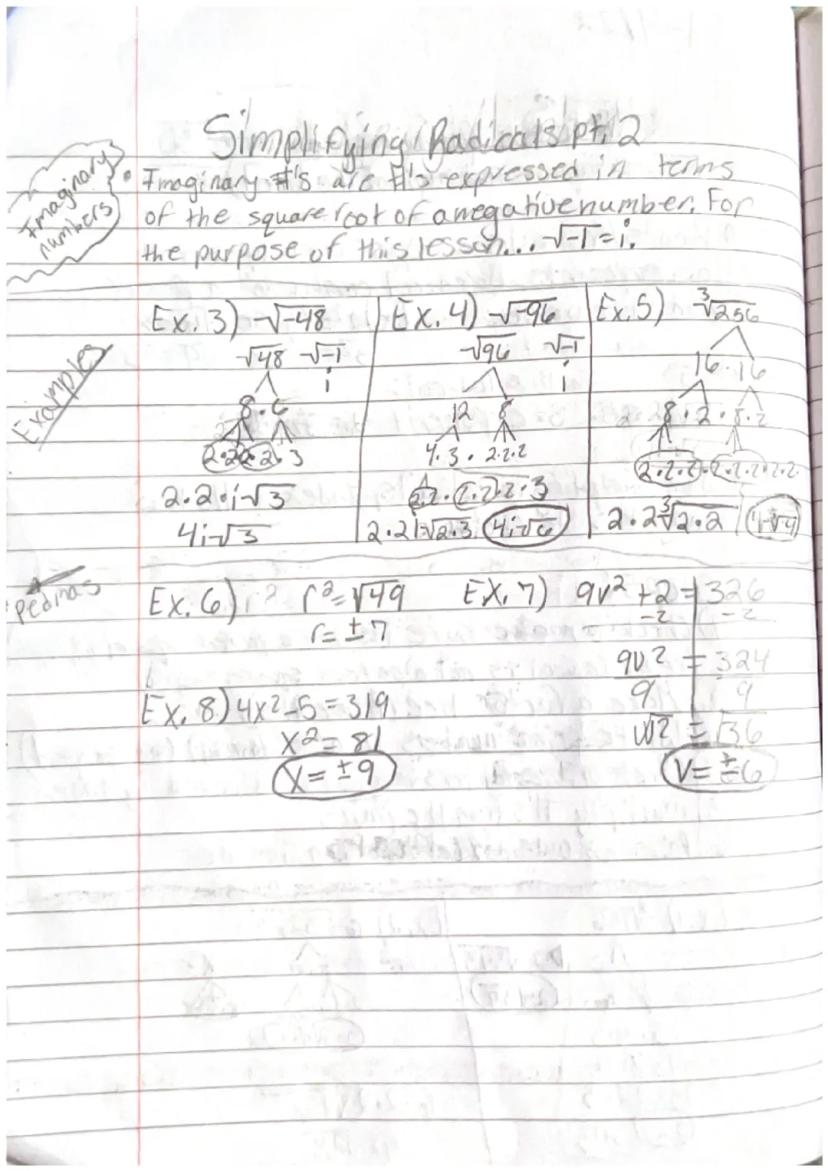 Simplifying Radicals pt. 2
Imaginary numbers
• Imaginary #'s are #'s expressed in terms
of the square root of a negative number. For
the purpose of this lesson... √-1 = i.
Examples
Ex. 3) √-48
√48 √-1
i
8 · 6
2·2·2·2·3
2·2·i√3
4i√3
Ex. 4) √-96
√96 √-1
i
12 8
4·3·2·2·2
2·2·2·2·2·3
2·2i√2·3 4i√6
Ex. 5) ∛256
16·16
8·2·8·2
2·2·2·2·2·2·2·2
2·2∛2·2 4∛4
Ex. 6) r² = √49
r = ±7
Ex. 7) 9v² + 2 = 326
-2 -2
9v² = 324
9 9
√v² = √36
v = ±6
Ex. 8) 4x² - 5 = 319
x² = 81
x = ±9